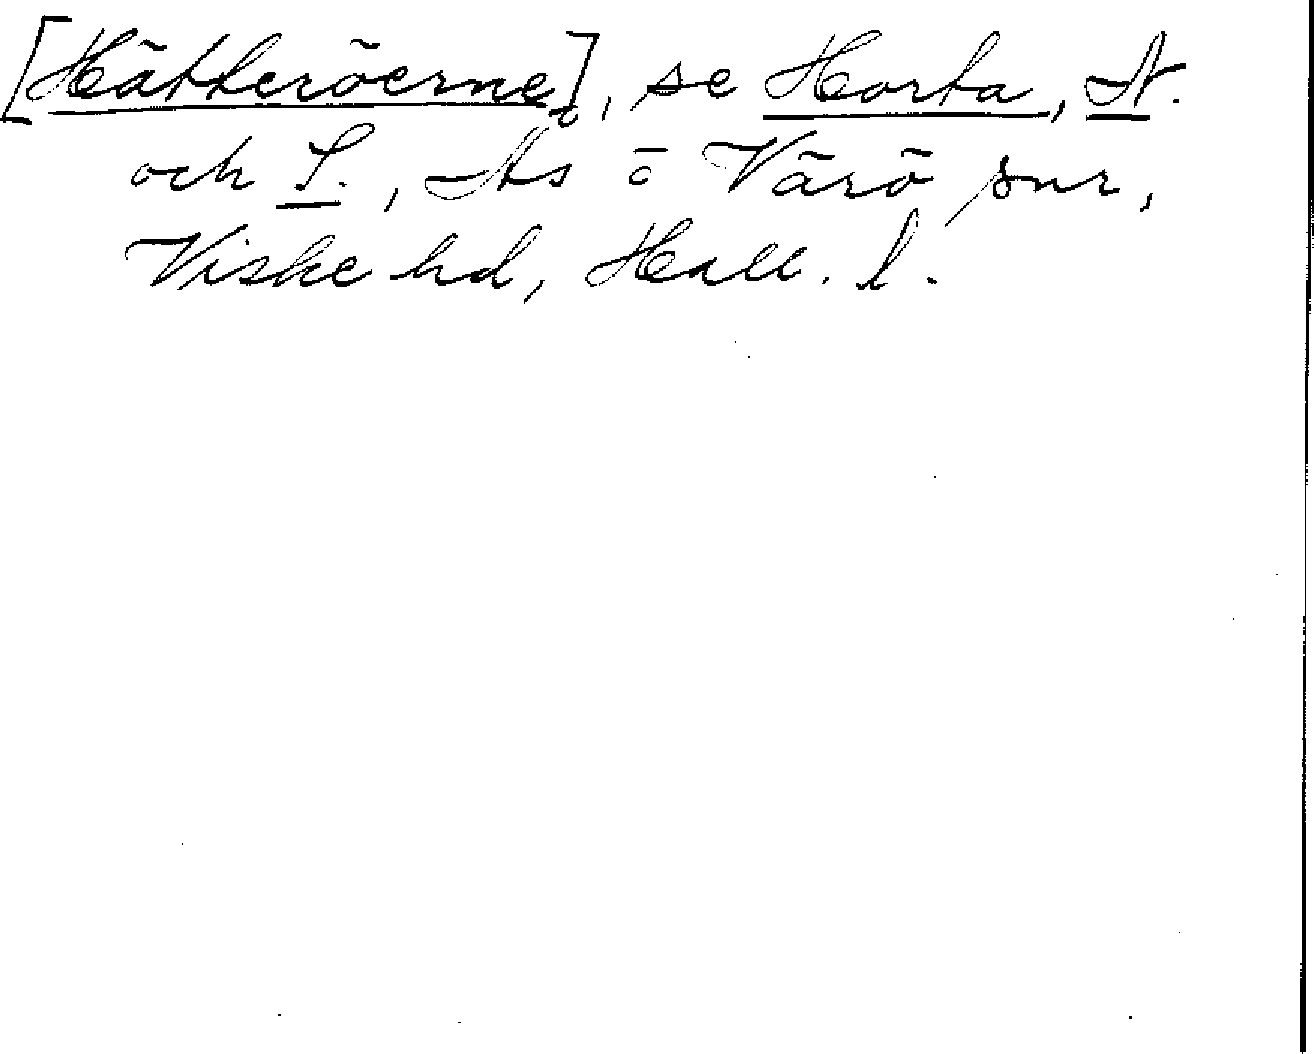 [Hätteröerne], se Horta, N.
och S., Ås ö Värö snr,
Viske hd, Hall. l.